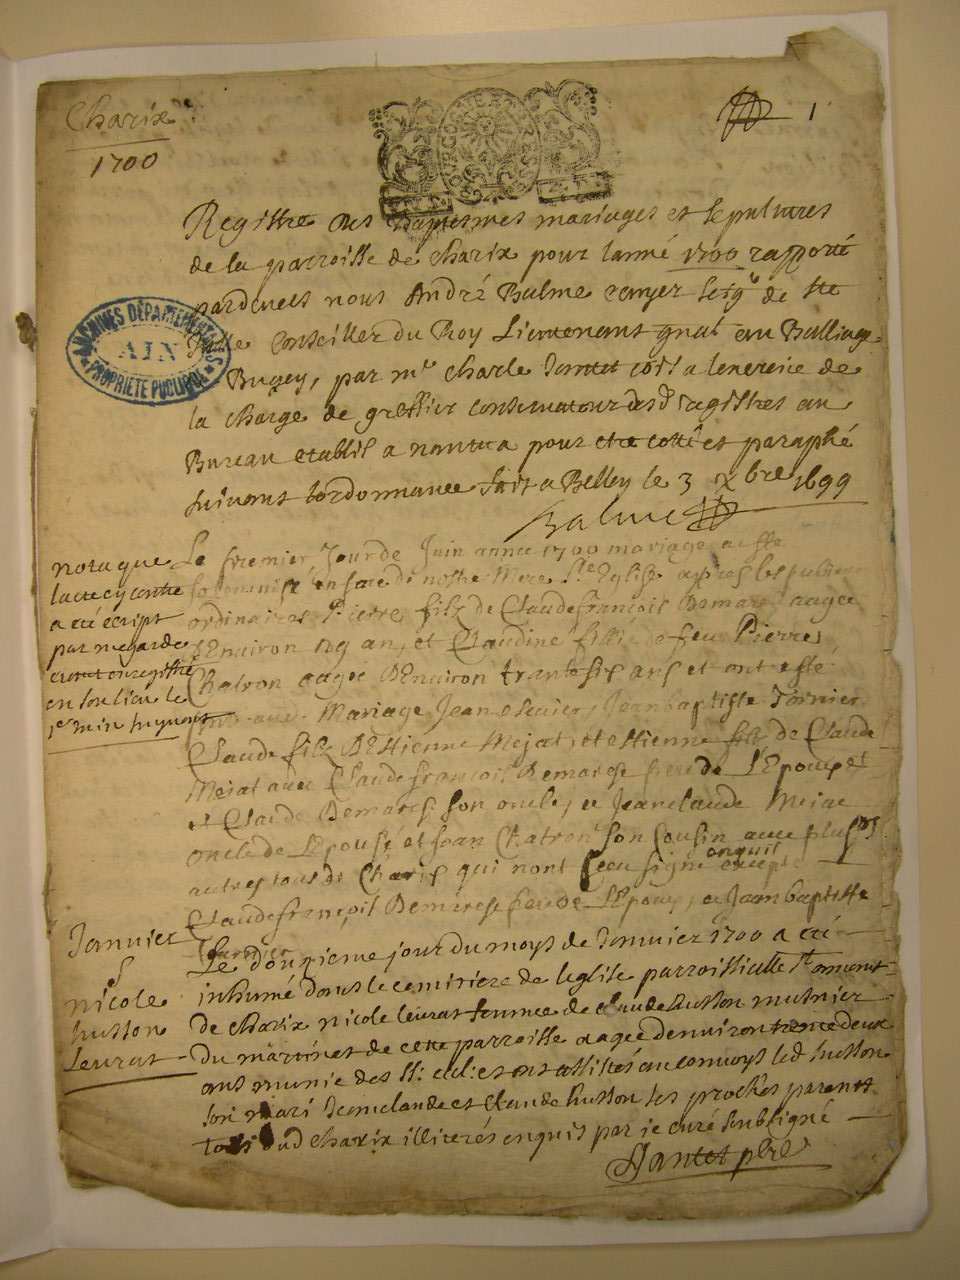 Charix
1700
1
BOURGOGNE ET BRESSE
Registre des baptesmes mariages et sepultures
de la parroisse de Charix pour lanné 1700 rapporté
pardevers nous André Balme seig de Ste
Julle Conseiller du Roy Lieutenant gnal au Balliage
Bugey, par mr Charle Jantet a lexercice de
la charge de greffier conservateur des registres au
Bureau establit a nantua pour estre cotté et paraphé
suivant lordonnance fait a Belley le 3 xbre 1699
Balme
ARCHIVES DÉPARTEMENTALES
AIN
PROPRIÉTÉ PUBLIQUE
nota que
lacte cy contre
a été écript
par megarde
en son lieu le
1er juin suyvant
Le premier Jour de Juin anné 1700 mariage a esté
solemnisé en face de nostre Mere Ste Eglise apres les
ordinaires Pierre filz de Claudefrançois Demares aagé
dEnviron 29 an, et Claudine fillie de feu Pierre
Chatron aagée dEnviron trantesix ans et ont esté
Mariage Jean Jeanbaptiste Tornier
Claude filz dEstienne Mejat, et estienne filz de Claude
Mejat avec Claudefrançois Demarese frere de LEpoux et
et Claude Demares son oncle, et Jeanclaude Mejat
oncle de LEpouse et Joan Chatron son Cousin avec plusrs
autres tous de Charix qui nont sceu signé enquis excepté
Claudefrançois Demarese frere de LEpoux, et Jeanbaptiste
Tornier
Janvier
S
nicole
husson
Leurat
Le douzieme jour du moys de Janvier 1700 a été
inhumé dans le cemitiere de leglise parroissialle St
de Charix nicole leurat femme de claude husson musnier
du martinet de cette parroisse aagée denviron trente deux
ans munie des St: ont assistés au convoys led husson
son mari Jeanclaude et Claude husson ses proches parents
tous dud Charix illiterés enquis par je curé soubsigné
Jantet pbre